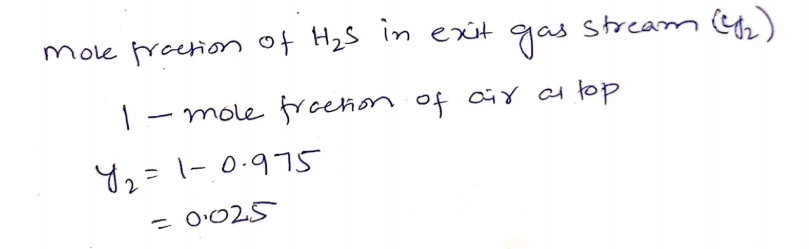 mole fraction of H₂S in exit gas stream (y₂)
1 - mole fraction of air at top
y₂ = 1 - 0.975
= 0.025